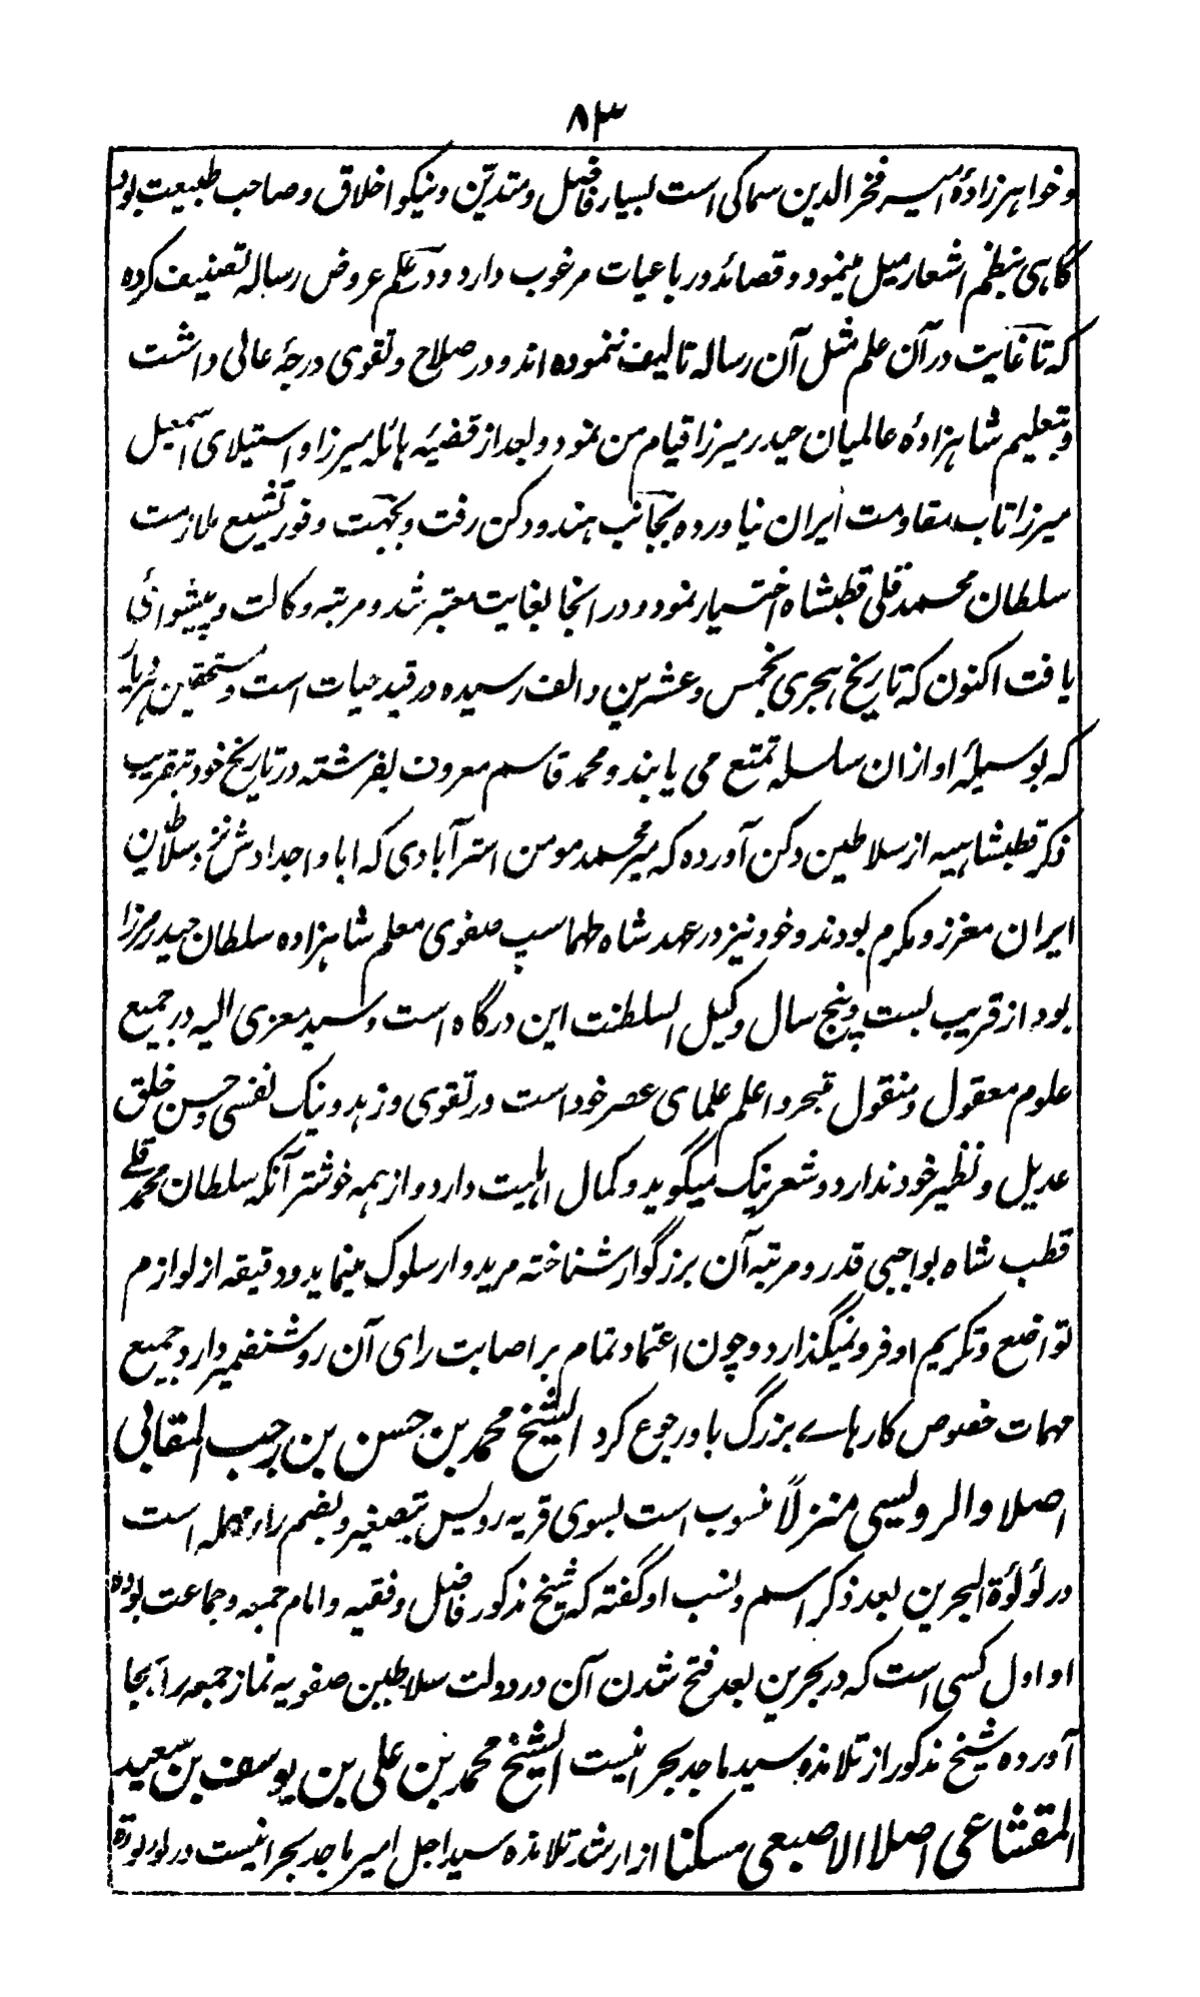 ۸۳
و خواهرزادهٔ میر فخر الدین سماکی است بسیار فاضل و متدیّن و نیکو اخلاق و صاحب طبیعت بود
گاهی بنظم اشعار میل مینمود و قصائد و رباعیات مرغوب دارد و در علم عروض رساله تصنیف کرده
که تا غایت در آن علم مثل آن رساله تالیف ننموده اند و در صلاح و تقوی درجهٔ عالی داشت
و بتعلیم شاهزادهٔ عالمیان حیدر میرزا قیام من نمود و بعد از قضیّه هائله میرزا و استیلای اسمعیل
میرزا تاب مقاومت ایران نیاورده بجانب هند و دکن رفت و بجهت وفور تشیع ملازمت
سلطان محمد قلی قطبشاه اختیار نمود و در انجا بغایت معتبر شد و مرتبه وکالت و پیشوائی
یافت اکنون که تاریخ هجری بخمس و عشرین و الف رسیده در قید حیات است و مستحقین هر دیار
که بوسیلهٔ او ازان سلسله تمتع می یابند و محمد قاسم معروف بفرشته در تاریخ خود بتقریب
ذکر قطبشاهیه از سلاطین دکن آورده که میر محمد مومن استرآبادی که ابا و اجدادش نزد سلاطین
ایران معزز و مکرم بودند و خود نیز در عهد شاه طهماسپ صفوی معلم شاهزاده سلطان حیدر مرزا
بود از قریب بست و پنج سال وکیل السلطنت این درگاه است و سید معزی الیه در جمیع
علوم معقول و منقول متبحر و اعلم علمای عصر خود است در تقوی و زهد و نیک نفسی و حسن خلق
عدیل و نظیر خود ندارد و شعر نیک میگوید و کمال اهلیت دارد و از همه خوشتر آنکه سلطان محمد قلی
قطب شاه بواجبی قدر و مرتبه آن بزرگوار شناخته مریدوار سلوک مینماید و دقیقه از لوازم
تواضع و تکریم او فرو نمیگذارد و چون اعتماد تمام بر اصابت رای آن روشنضمیر دارد جمیع
مهمات خصوص کارهاے بزرگ باو رجوع کرد الشیخ محمد بن حسن بن رجب المقابی
اصلا والرویسی منزلاً منسوب است بسوی قریه رویس بتصغیر و بضم راء مهمله است
در لؤلؤة البحرین بعد ذکر اسم و نسب او گفته که شیخ مذکور فاضل و فقیه و امام جمعه و جماعت بوده
او اول کسی است که در بحرین بعد فتح شدن آن در دولت سلاطین صفویه نماز جمعه را بجا
آورده شیخ مذکور از تلامذه سید ماجد بحرانیست الشیخ محمد بن علی بن یوسف بن سعید
المقشاعی اصلا الاصبعی مسکنا از ارشد تلامذه سید اجل امیر ماجد بحرانیست در لؤلؤة